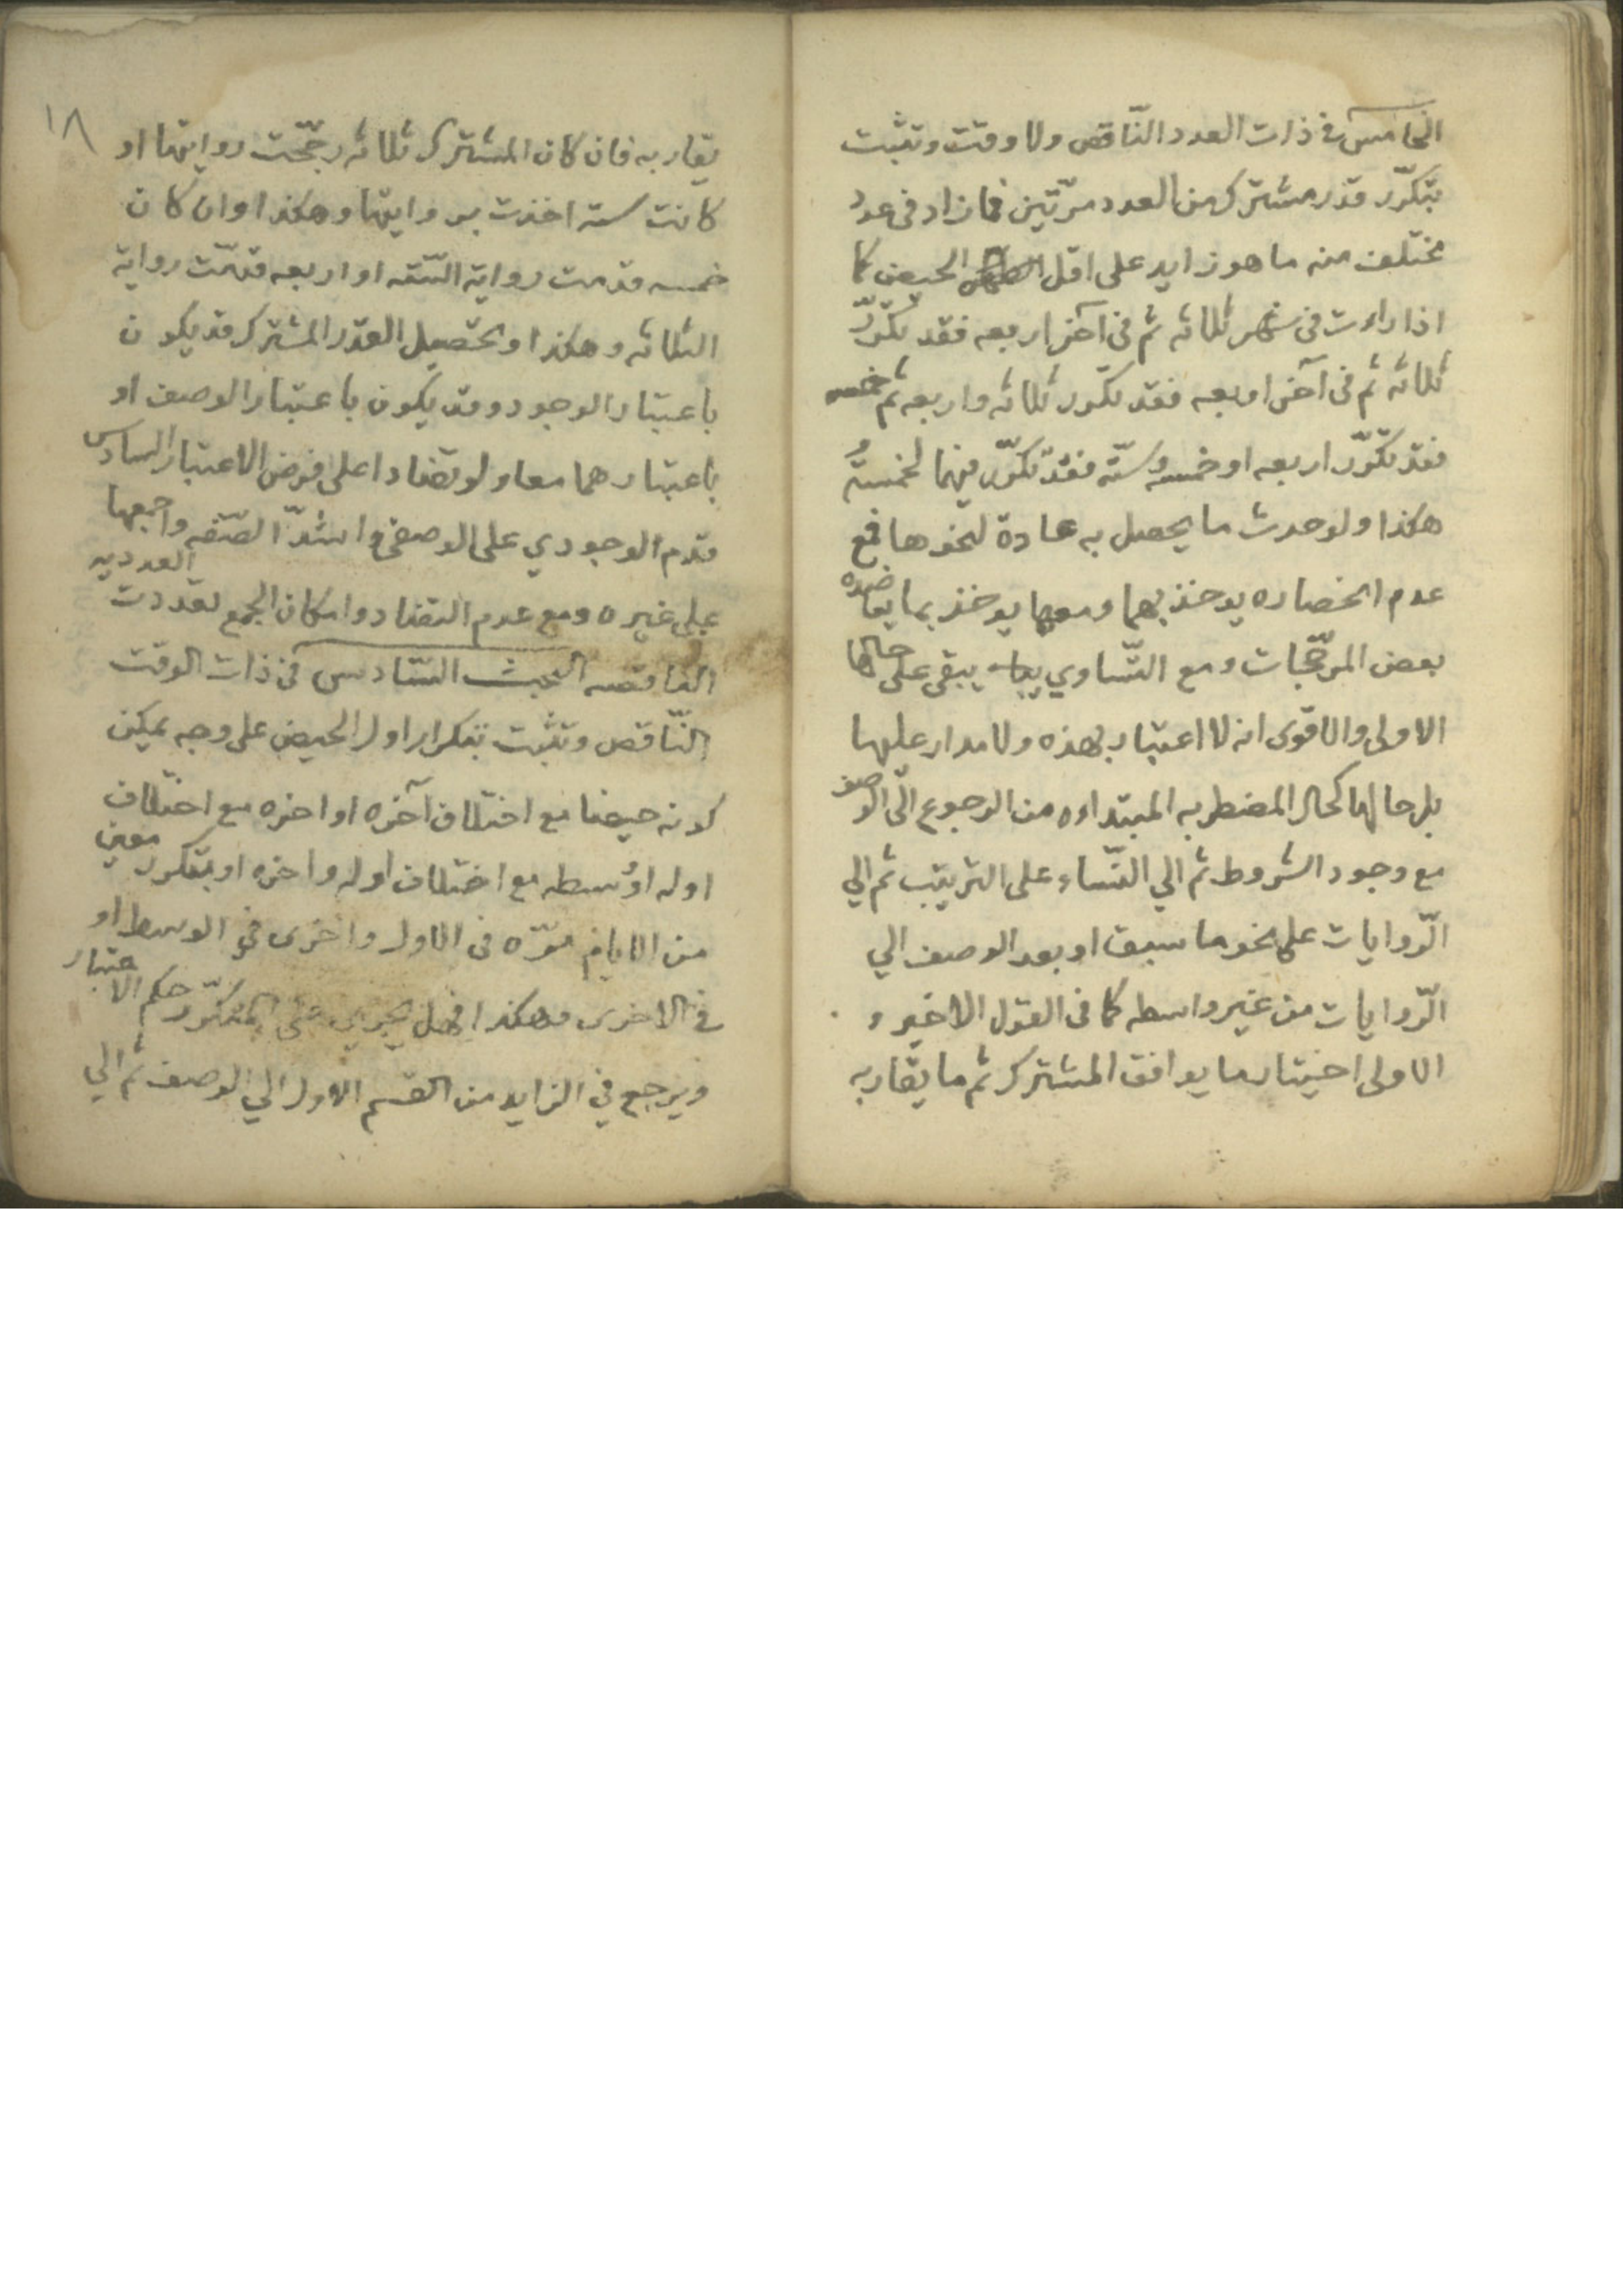 الخامس في ذات العدد الناقص ولا وقت وتثبت
بتكرّر قدر مشترك من العدد مرّتين فما زاد في عدد
مختلف منه ما هو زايد على اقل الحيض كما
اذا رات في شهر ثلاثه ثم في آخر اربعه فقد تكرّر
ثلاثه ثم في آخر اربعه فقد تكرر ثلاثه واربعه ثم خمسه
فقد تكرّر اربعه او خمسه وستّه فقد تكرّر فيهما لخمسة و
هكذا ولو حدث ما يحصل به عادة لنحوها فمع
عدم انحصاره يوخذ بهما ومعها يوخذ بما يعاضده
بعض المرجّحات ومع التّساوي يبقى على حالها
الاولى والاقوى انه لا اعتبار بهذه ولا مدار عليها
بل حالها كحال المضطربه المبتداءه من الرجوع الى الوصف
مع وجود الشروط ثم الي النّساء على الترتيب ثم الي
الرّوايات على نحو ما سبق او بعد الوصف الي
الرّوايات من غير واسطه كما في القول الاخير و
الاولى اختيار ما يوافق المشترك ثم ما يقاربه
١٨
يقاربه فان كان المشترك ثلاثه رجّحت روايتها او
كانت سته اخذت بروايتها وهكذا وان كان
خمسه قدمت رواية السّته او اربعه قدمّت رواية
الثلاثه وهكذا وتحصيل القدر المشترك قد يكون
باعتبار الوجود وقد يكون باعتبار الوصف او
باعتبارهما معا ولو تضادا على فرض الاعتبار السادس
قدم الوجودي على الوصفي واشدّ الصّفه واجمعها
على غيره ومع عدم التضاد وامكان الجمع تعددت العدديه
الناقصه البحث السّادس في ذات الوقت
النّاقص وتثبت بتكرار اول الحيض على وجه يمكن
كونه حيضا مع اختلاف آخره او اخره مع اختلاف
اوله او وسطه مع اختلاف اوله واخره او بتكرر معين
من الايام مرّه في الاول واخرى في الوسط او
في الاخرى وهكذا فهل يجري على المتكرّر حكم الاعتبار
ويرجع في الزايد من القسم الاول الي الوصف ثم الي